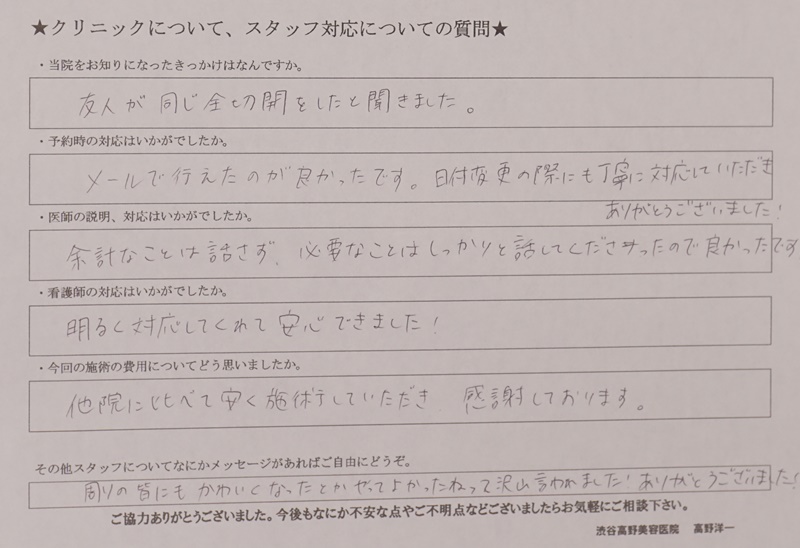 ★クリニックについて、スタッフ対応についての質問★
・当院をお知りになったきっかけはなんですか。
友人が同じ全切開をしたと聞きました。
・予約時の対応はいかがでしたか。
メールで行えたのが良かったです。日付変更の際にも丁寧に対応していただき
ありがとうございました!
・医師の説明、対応はいかがでしたか。
余計なことは話さず、必要なことはしっかりと話してくださったので良かったです
・看護師の対応はいかがでしたか。
明るく対応してくれて安心できました!
・今回の施術の費用についてどう思いましたか。
他院に比べて安く施術していただき 感謝しております。
その他スタッフについてなにかメッセージがあればご自由にどうぞ。
周りの皆にもかわいくなったとかやってよかったねって沢山言われました!ありがとうございました!
ご協力ありがとうございました。今後もなにか不安な点やご不明点などございましたらお気軽にご相談下さい。
渋谷高野美容医院 高野洋一